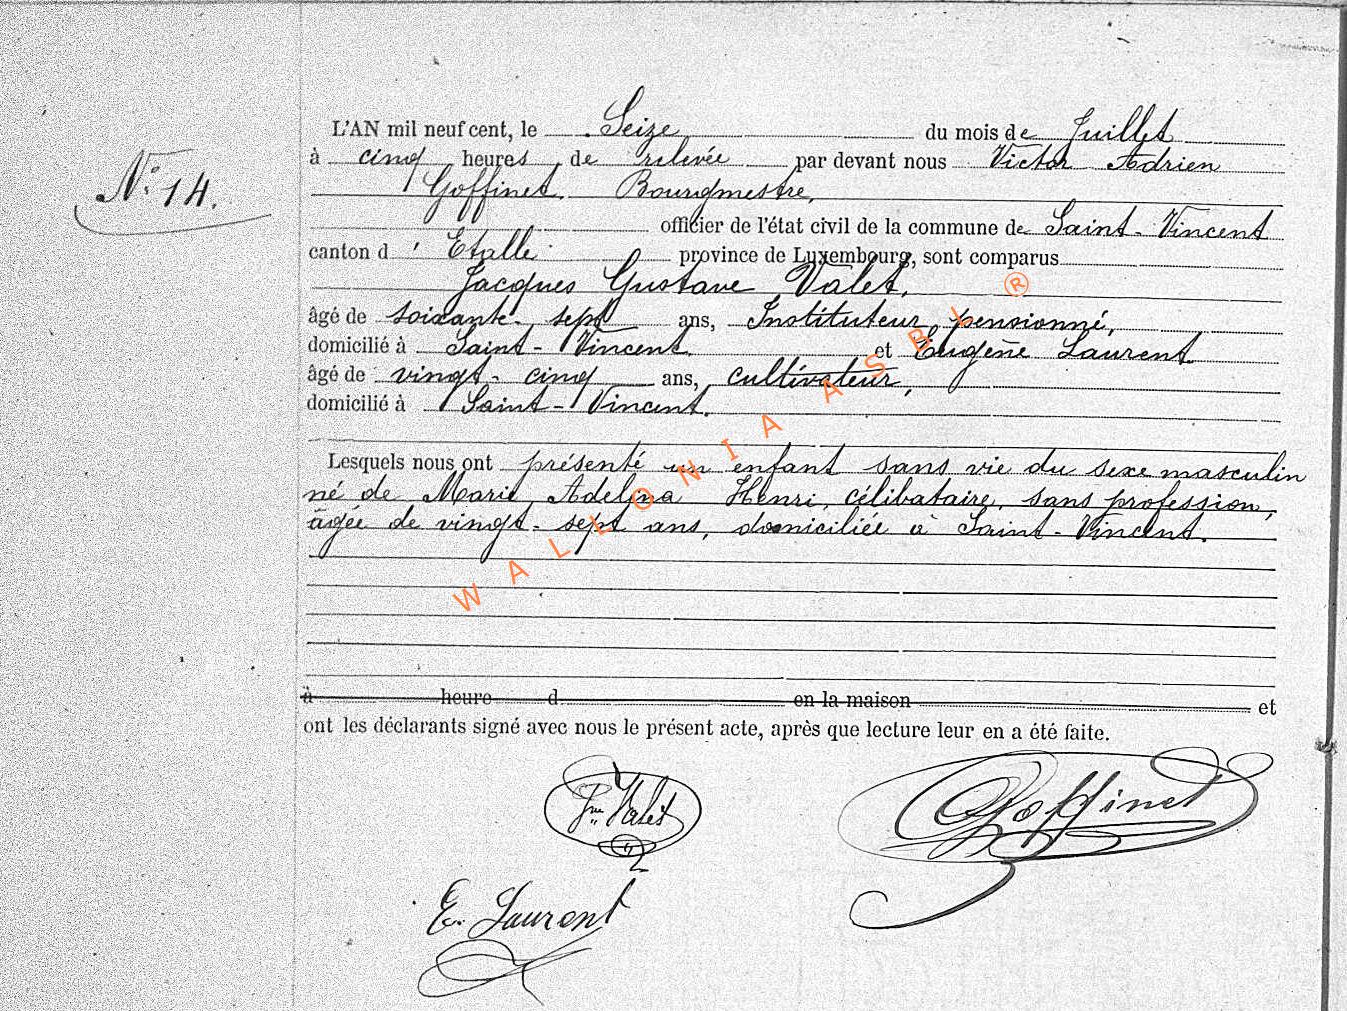 L'AN mil neuf cent, le Seize du mois de Juillet
N° 14.
à cinq heures de relevée par devant nous Victor Adrien
Goffinet Bourgmestre,
officier de l'état civil de la commune de Saint-Vincent
canton d'Etalle province de Luxembourg, sont comparus
Jacques Gustave Valet,
âgé de soixante-sept ans, Instituteur pensionné,
domicilié à Saint-Vincent et Eugène Laurent
âgé de vingt-cinq ans, cultivateur,
domicilié à Saint-Vincent.
Lesquels nous ont présenté un enfant sans vie du sexe masculin
né de Marie Adelina Henri, célibataire, sans profession,
âgée de vingt-sept ans, domiciliée à Saint-Vincent.
WALLONIA ASBL ®
à heure d en la maison et
ont les déclarants signé avec nous le présent acte, après que lecture leur en a été faite.
Valet
Goffinet
E. Laurent